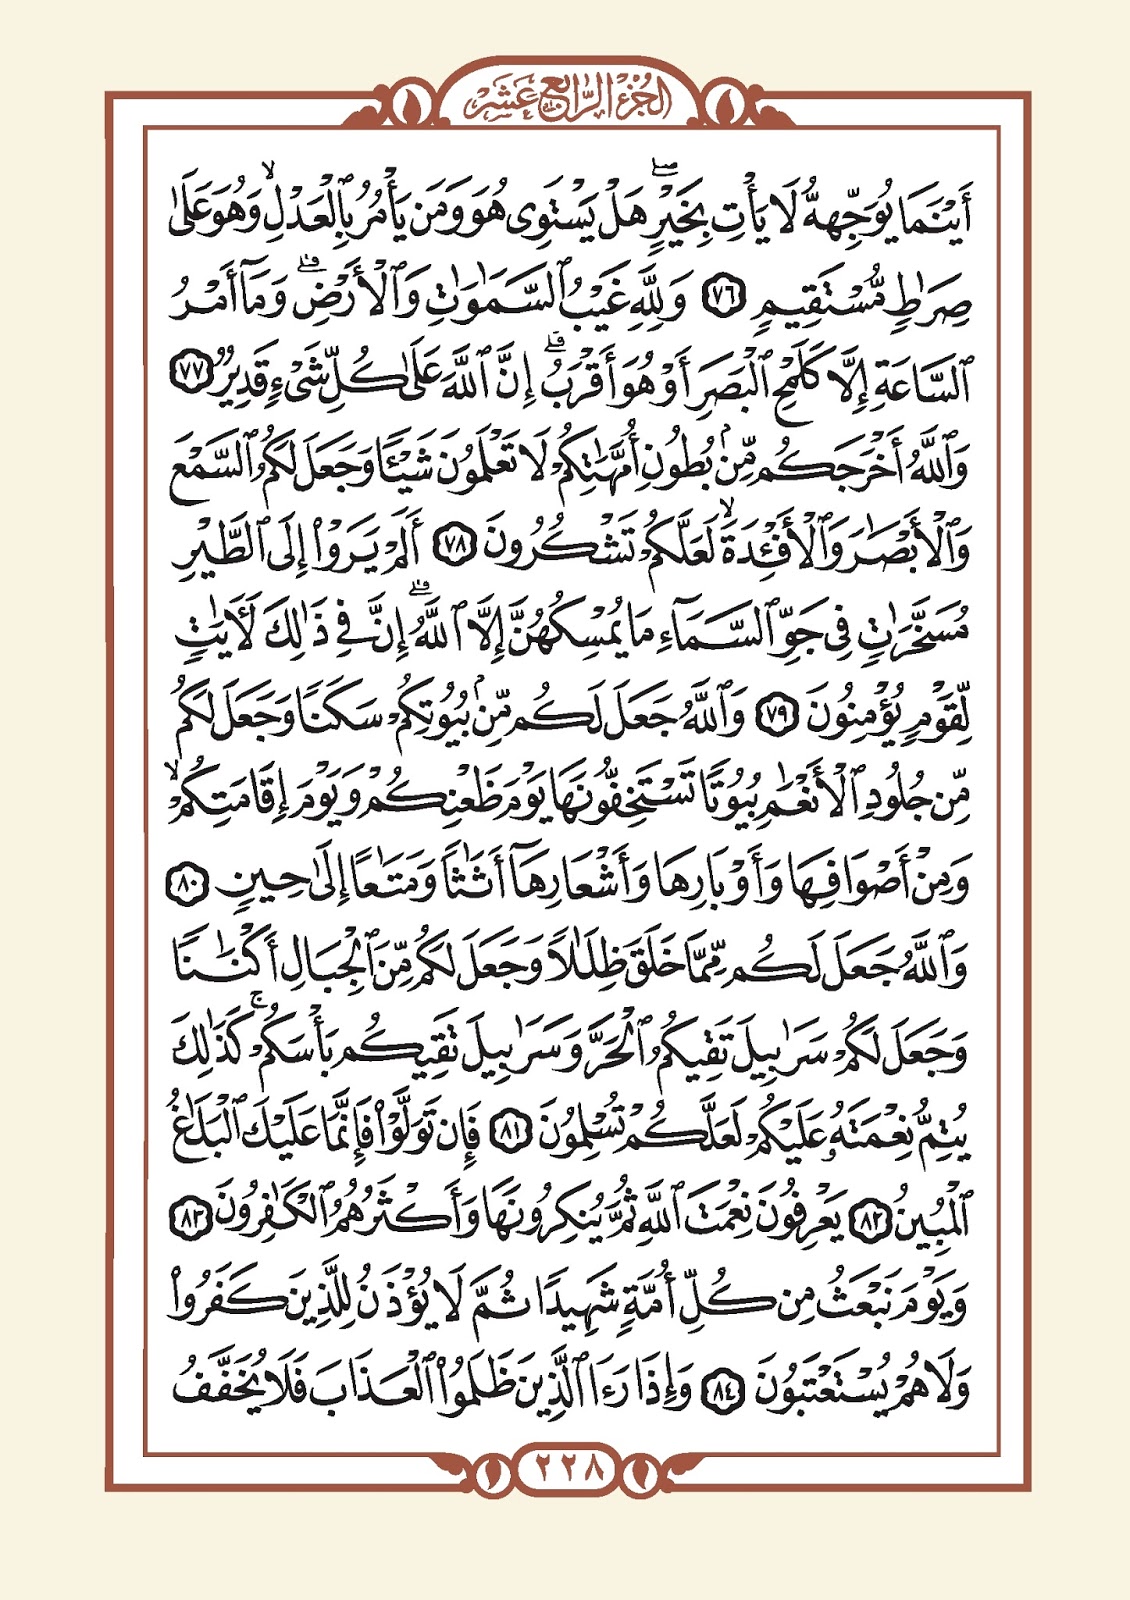 الجزء الرابع عشر
أَيْنَمَا يُوَجِّههُّ لَا يَأْتِ بِخَيْرٍۖ هَلْ يَسْتَوِي هُوَ وَمَن يَأْمُرُ بِٱلْعَدْلِۙ وَهُوَ عَلَىٰ
صِرَٰطٍ مُّسْتَقِيمٍ ٧٦ وَلِلَّهِ غَيْبُ ٱلسَّمَٰوَٰتِ وَٱلْأَرْضِۚ وَمَآ أَمْرُ
ٱلسَّاعَةِ إِلَّا كَلَمْحِ ٱلْبَصَرِ أَوْ هُوَ أَقْرَبُۚ إِنَّ ٱللَّهَ عَلَىٰ كُلِّ شَيْءٍ قَدِيرٌ ٧٧
وَٱللَّهُ أَخْرَجَكُم مِّنۢ بُطُونِ أُمَّهَٰتِكُمْ لَا تَعْلَمُونَ شَيْئًا وَجَعَلَ لَكُمُ ٱلسَّمْعَ
وَٱلْأَبْصَٰرَ وَٱلْأَفْئِدَةَۙ لَعَلَّكُمْ تَشْكُرُونَ ٧٨ أَلَمْ يَرَوْا۟ إِلَى ٱلطَّيْرِ
مُسَخَّرَٰتٍ فِي جَوِّ ٱلسَّمَآءِ مَا يُمْسِكُهُنَّ إِلَّا ٱللَّهُۚ إِنَّ فِي ذَٰلِكَ لَأَيَٰتٍ
لِّقَوْمٍ يُؤْمِنُونَ ٧٩ وَٱللَّهُ جَعَلَ لَكُم مِّنۢ بُيُوتِكُمْ سَكَنًا وَجَعَلَ لَكُم
مِّن جُلُودِ ٱلْأَنْعَٰمِ بُيُوتًا تَسْتَخِفُّونَهَا يَوْمَ ظَعْنِكُمْ وَيَوْمَ إِقَامَتِكُمْۙ
وَمِنْ أَصْوَافِهَا وَأَوْبَارِهَا وَأَشْعَارِهَآ أَثَٰثًا وَمَتَٰعًا إِلَىٰ حِينٍ ٨٠
وَٱللَّهُ جَعَلَ لَكُم مِّمَّا خَلَقَ ظِلَٰلًا وَجَعَلَ لَكُم مِّنَ ٱلْجِبَالِ أَكْنَٰنًا
وَجَعَلَ لَكُمْ سَرَٰبِيلَ تَقِيكُمُ ٱلْحَرَّ وَسَرَٰبِيلَ تَقِيكُم بَأْسَكُمْۚ كَذَٰلِكَ
يُتِمُّ نِعْمَتَهُۥ عَلَيْكُمْ لَعَلَّكُمْ تُسْلِمُونَ ٨١ فَإِن تَوَلَّوْا۟ فَإِنَّمَا عَلَيْكَ ٱلْبَلَٰغُ
ٱلْمُبِينُ ٨٢ يَعْرِفُونَ نِعْمَتَ ٱللَّهِ ثُمَّ يُنكِرُونَهَا وَأَكْثَرُهُمُ ٱلْكَٰفِرُونَ ٨٣
وَيَوْمَ نَبْعَثُ مِن كُلِّ أُمَّةٍ شَهِيدًا ثُمَّ لَا يُؤْذَنُ لِلَّذِينَ كَفَرُوا۟
وَلَا هُمْ يُسْتَعْتَبُونَ ٨٤ وَإِذَا رَءَا ٱلَّذِينَ ظَلَمُوا۟ ٱلْعَذَابَ فَلَا يُخَفَّفُ
٢٢٨